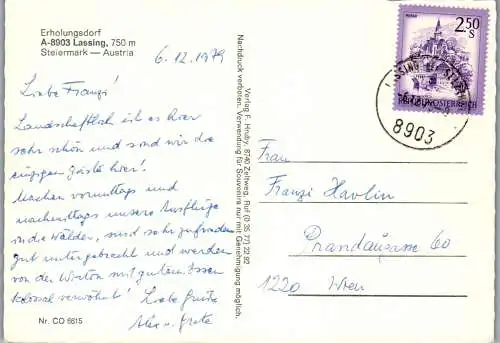 Erholungsdorf
A-8903 Lassing, 750 m
Steiermark — Austria
6.12.1979
Liebe Franzi!
Landschaftlich ist es hier
sehr schön und sind wir die
einzigen Gäste hier!
Machen vormittags und
nachmittags unsere Ausflüge
in die Wälder, sind sehr zufrieden
gut untergebracht und werden
von der Wirtin mit gutem Essen
kolossal verwöhnt! Liebe Grüße
Alex u. Grete
Nr. CO 6615
Verlag F. Hruby, 8740 Zeltweg, Ruf (0 35 77) 22 92
Nachdruck verboten. Verwendung für Souvenirs nur mit Genehmigung möglich.
2.50
S
REPUBLIK ÖSTERREICH
LASSING
8903
Frau
Franzi Havlin
Prandaugasse 60
1220 Wien